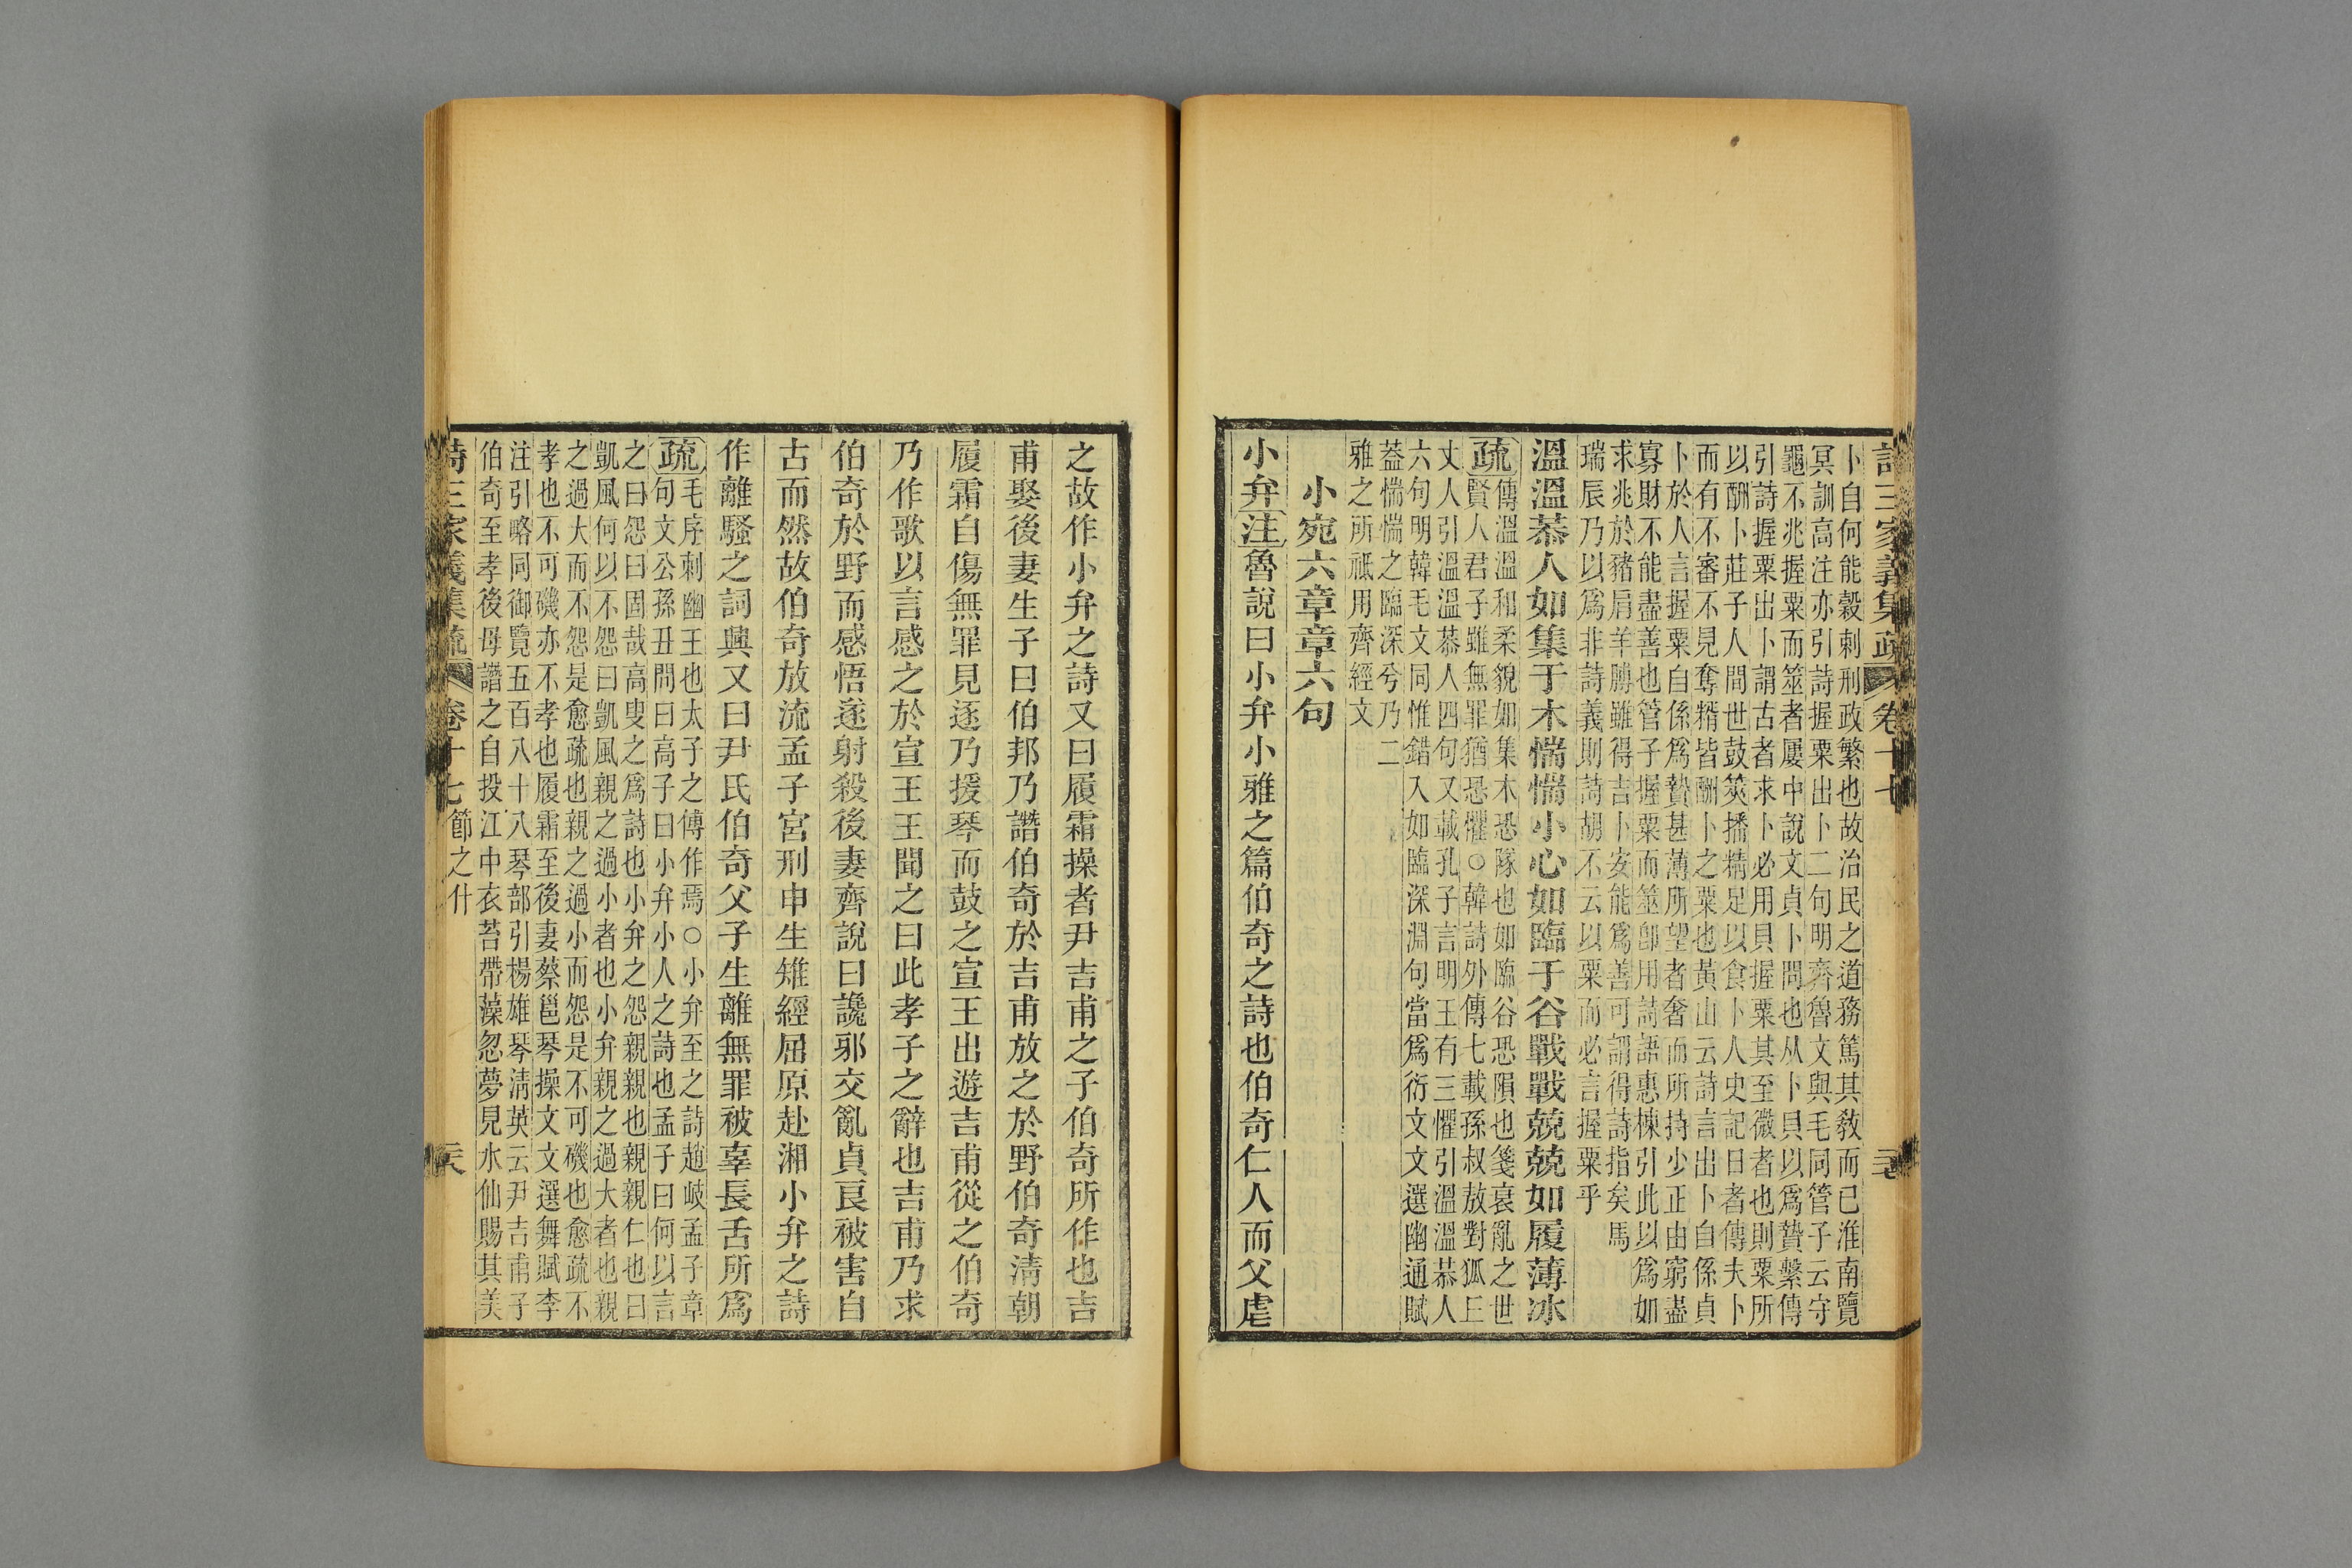 詩三家義集疏 卷十七
卜自何能穀刺刑政繁也故治民之道務篤其教而已淮南覽
冥訓高注亦引詩握粟出卜二句明齊魯文與毛同管子云守
龜不兆握粟而筮者屢中說文貞卜問也从卜貝以爲贄繫傳
引詩握粟出卜謂古者求卜必用貝握粟其至微者也則粟所
以酬卜莊子人間世鼓筴播精足以食卜人史記日者傳夫卜
而有不審不見奪糈皆酬卜之粟也黃山云詩言出卜自係貞
卜於人言握粟自係爲贄甚薄所望者奢而所持少正由窮盡
寡財不能盡善也管子握粟而筮卽用詩語惠棟引此以爲如
求兆於豬肩羊膊雖得吉卜安能爲善可謂得詩指矣馬
瑞辰乃以爲非詩義則詩胡不云以粟而必言握粟乎
溫溫恭人如集于木惴惴小心如臨于谷戰戰兢兢如履薄冰
疏傳溫溫和柔貌如集木恐隊也如臨谷恐隕也箋衰亂之世
賢人君子雖無罪猶恐懼○韓詩外傳七載孫叔敖對狐丘
丈人引溫溫恭人四句又載孔子言明王有三懼引溫溫恭人
六句明韓毛文同惟錯入如臨深淵句當爲衍文文選幽通賦
蓋惴惴之臨深兮乃二
雅之所祗用齊經文
小宛六章章六句
小弁注魯說曰小弁小雅之篇伯奇之詩也伯奇仁人而父虐
之故作小弁之詩又曰履霜操者尹吉甫之子伯奇所作也吉
甫娶後妻生子曰伯邦乃譖伯奇於吉甫放之於野伯奇清朝
履霜自傷無罪見逐乃援琴而鼓之宣王出遊吉甫從之伯奇
乃作歌以言感之於宣王王聞之曰此孝子之辭也吉甫乃求
伯奇於野而感悟遂射殺後妻齊說曰讒邪交亂貞良被害自
古而然故伯奇放流孟子宮刑申生雉經屈原赴湘小弁之詩
作離騷之詞興又曰尹氏伯奇父子生離無罪被辜長舌所爲
疏毛序刺幽王也太子之傅作焉○小弁至之詩趙岐孟子章
句文公孫丑問曰高子曰小弁小人之詩也孟子曰何以言
之曰怨曰固哉高叟之爲詩也小弁之怨親親也親親仁也曰
凱風何以不怨曰凱風親之過小者也小弁親之過大者也親
之過大而不怨是愈疏也親之過小而怨是不可磯也愈疏不
孝也不可磯亦不孝也履霜至後妻蔡邕琴操文文選舞賦李
注引略同御覽五百八十八琴部引楊雄琴淸英云尹吉甫子
伯奇至孝後母譖之自投江中衣苔帶藻忽夢見水仙賜其美
詩三家義集疏 卷十七 節之什 二六